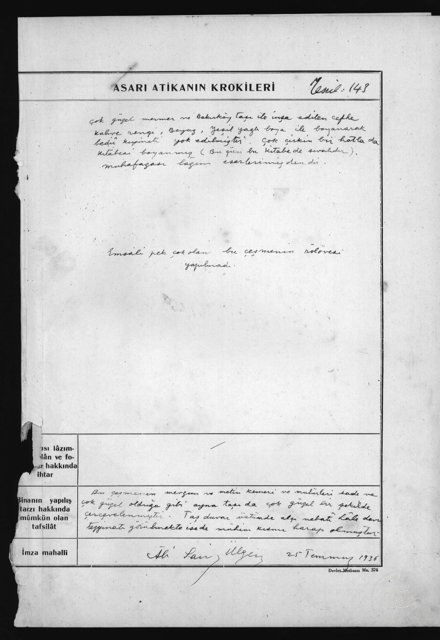 ASARI ATİKANIN KROKİLERİ
Tescil: 143
Çok güzel mermer ve Bakırköy taşı ile inşa edilen cephe
kahve rengi, Beyaz, Yeşil yağlı boya ile boyanarak
bedii kıymeti yok edilmiştir. Çok çirkin bir hatla da
kitabesi boyanmış (Bu gün bu kitabe de sıvalıdır).
muhafazası lâzım eserlerimizdendir.
Emsali pek çok olan bu çeşmenin rölövesi
yapılmadı.
ısı lâzım-
lân ve fo-
hakkında
ihtar
Binanın yapılış
tarzı hakkında
mümkün olan
tafsilât
Bu çeşmenin mevzun ve metin kemeri ve sade ve
çok güzel olduğu gibi ayna taşı da çok güzel bir şekilde
çerçevelenmiştir. Taş duvar üstünde alçı nebatî hâlâ
görülmekte isede mühim kısmı harap olmuştur.
İmza mahalli
Ali Saim Ülgen 25 Temmuz 1936
Devlet Matbaası No. 374